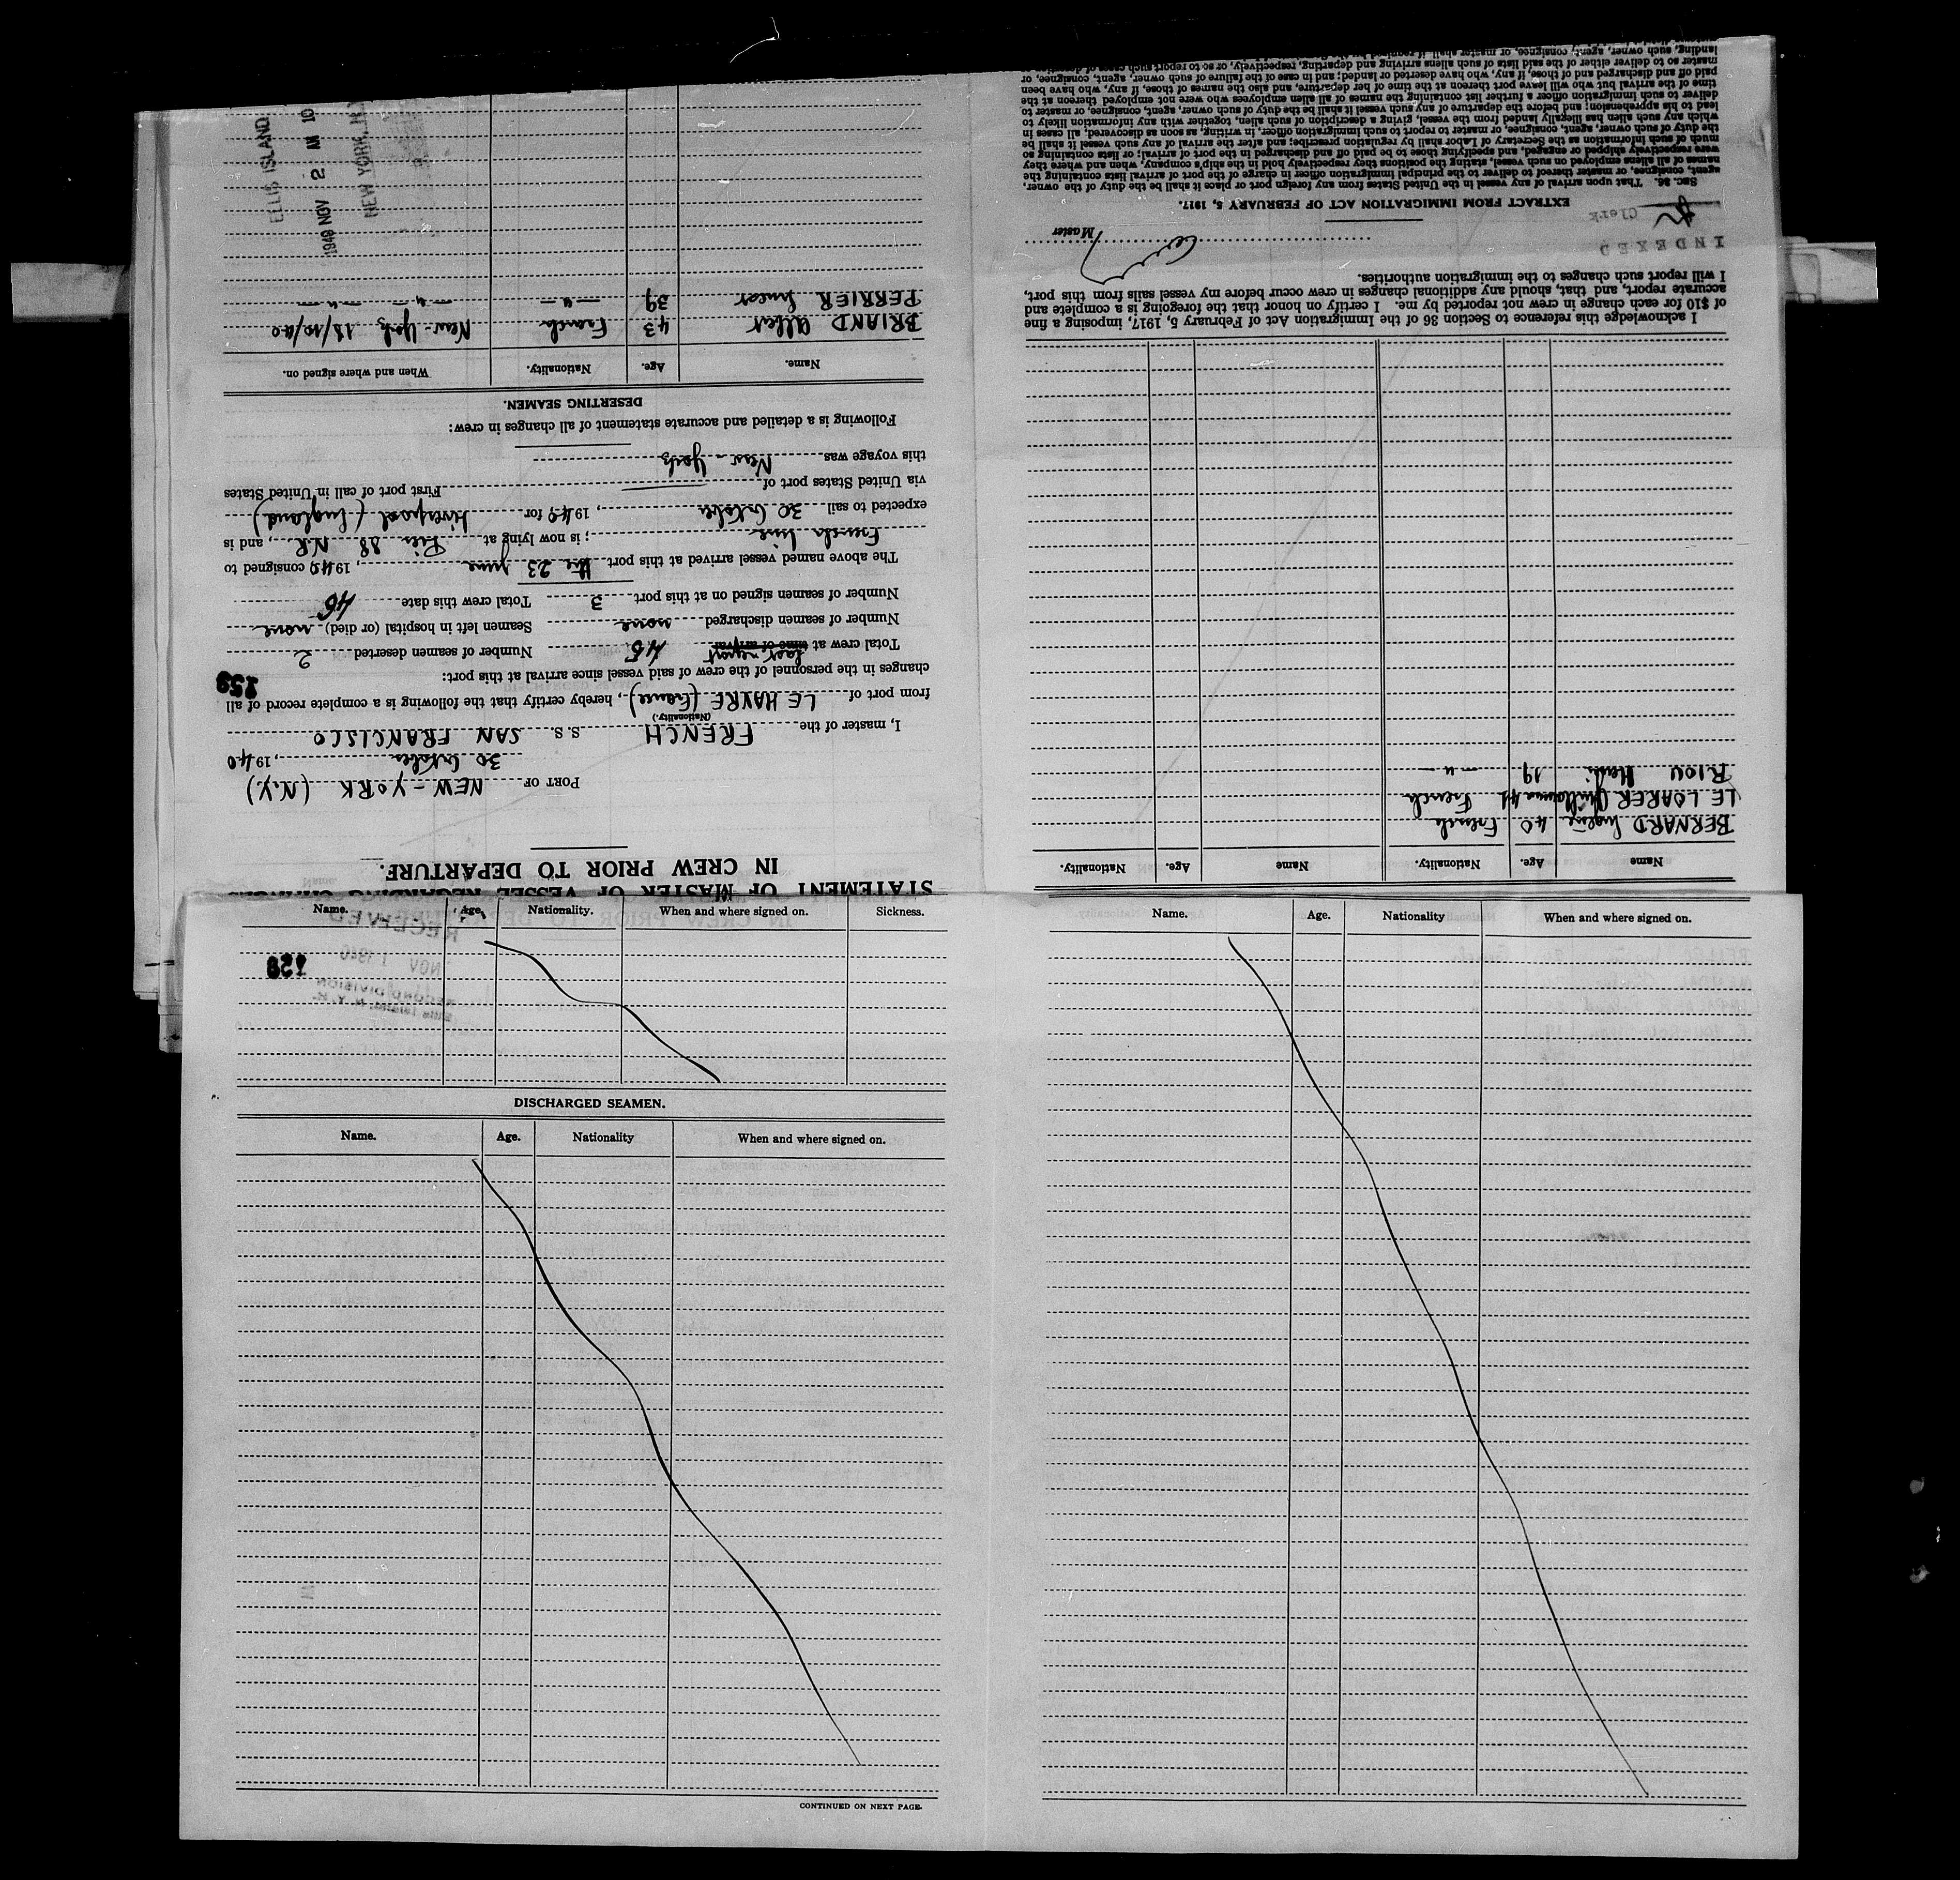 STATEMENT OF MASTER OF VESSEL REGARDING CHANGES
IN CREW PRIOR TO DEPARTURE.
PORT OF NEW-YORK (N.Y.)
30 October, 1940
I, master of the FRENCH S. S. SAN FRANCISCO
(Nationality.)
from port of LE HAVRE (France), hereby certify that the following is a complete record of all
159
changes in the personnel of the crew of said vessel since arrival at this port:
Total crew at time of arrival last report 45 Number of seamen deserted 2
Number of seamen discharged none Seamen left in hospital (or died) none
Number of seamen signed on at this port 3 Total crew this date 46
The above named vessel arrived at this port the 23 June, 1940 consigned to
French line; is now lying at Pier 88 N.R., and is
expected to sail 30 October, 1940 for Liverpool (England)
via United States port of — First port of call in United States
this voyage was New-York
Following is a detailed and accurate statement of all changes in crew:
DESERTING SEAMEN.
Name. Age. Nationality. When and where signed on.
BRIAND Albert 43 French New-York 18/10/40
PERRIER 39 —u— —u— —u—
ELLIS ISLAND
1940 NOV 2 AM 10
NEW YORK, N.Y.
Name Age. Nationality. Name Age. Nationality.
BERNARD Eugène 40 French
LE LOARER Guillaume 41 French
RIOU Henri 19 —u—
I acknowledge this reference to Section 36 of the Immigration Act of February 5, 1917, imposing a fine
of $10 for each change in crew not reported by me. I certify on honor that the foregoing is a complete and
accurate report, and that, should any additional changes in crew occur before my vessel sails from this port,
I will report such changes to the immigration authorities.
INDEXED
Clerk
Master
EXTRACT FROM IMMIGRATION ACT OF FEBRUARY 5, 1917.
Sec. 36. That upon arrival of any vessel in the United States from any foreign port or place it shall be the duty of the owner,
agent, consignee, or master thereof to deliver to the principal immigration officer in charge of the port of arrival lists containing the
names of all aliens employed on such vessel, stating the positions they respectively hold in the ship's company, when and where they
were respectively shipped or engaged, and specifying those to be paid off and discharged in the port of arrival; or lists containing so
much of such information as the Secretary of Labor shall by regulation prescribe; and after the arrival of any such vessel it shall be
the duty of such owner, agent, consignee, or master to report to such immigration officer, in writing, as soon as discovered, all cases in
which any such alien has illegally landed from the vessel, giving a description of such alien, together with any information likely to
lead to his apprehension; and before the departure of any such vessel it shall be the duty of such owner, agent, consignee, or master to
deliver to such immigration officer a further list containing the names of all alien employees who were not employed thereon at the
time of the arrival but who will leave port thereon at the time of her departure, and also the names of those, if any, who have been
paid off and discharged and of those, if any, who have deserted or landed; and in case of the failure of such owner, agent, consignee, or
master so to deliver either of the said lists of such aliens arriving and departing, respectively, or so to report such cases of desertion or
landing, such owner, agent, consignee, or master shall, if required by
Name. Age. Nationality. When and where signed on. Sickness.
RECEIVED
NOV 1 1940
RECORD DIVISION
Ellis Island, N. Y. H.
158
DISCHARGED SEAMEN.
Name. Age. Nationality When and where signed on.
CONTINUED ON NEXT PAGE.
Name. Age. Nationality When and where signed on.